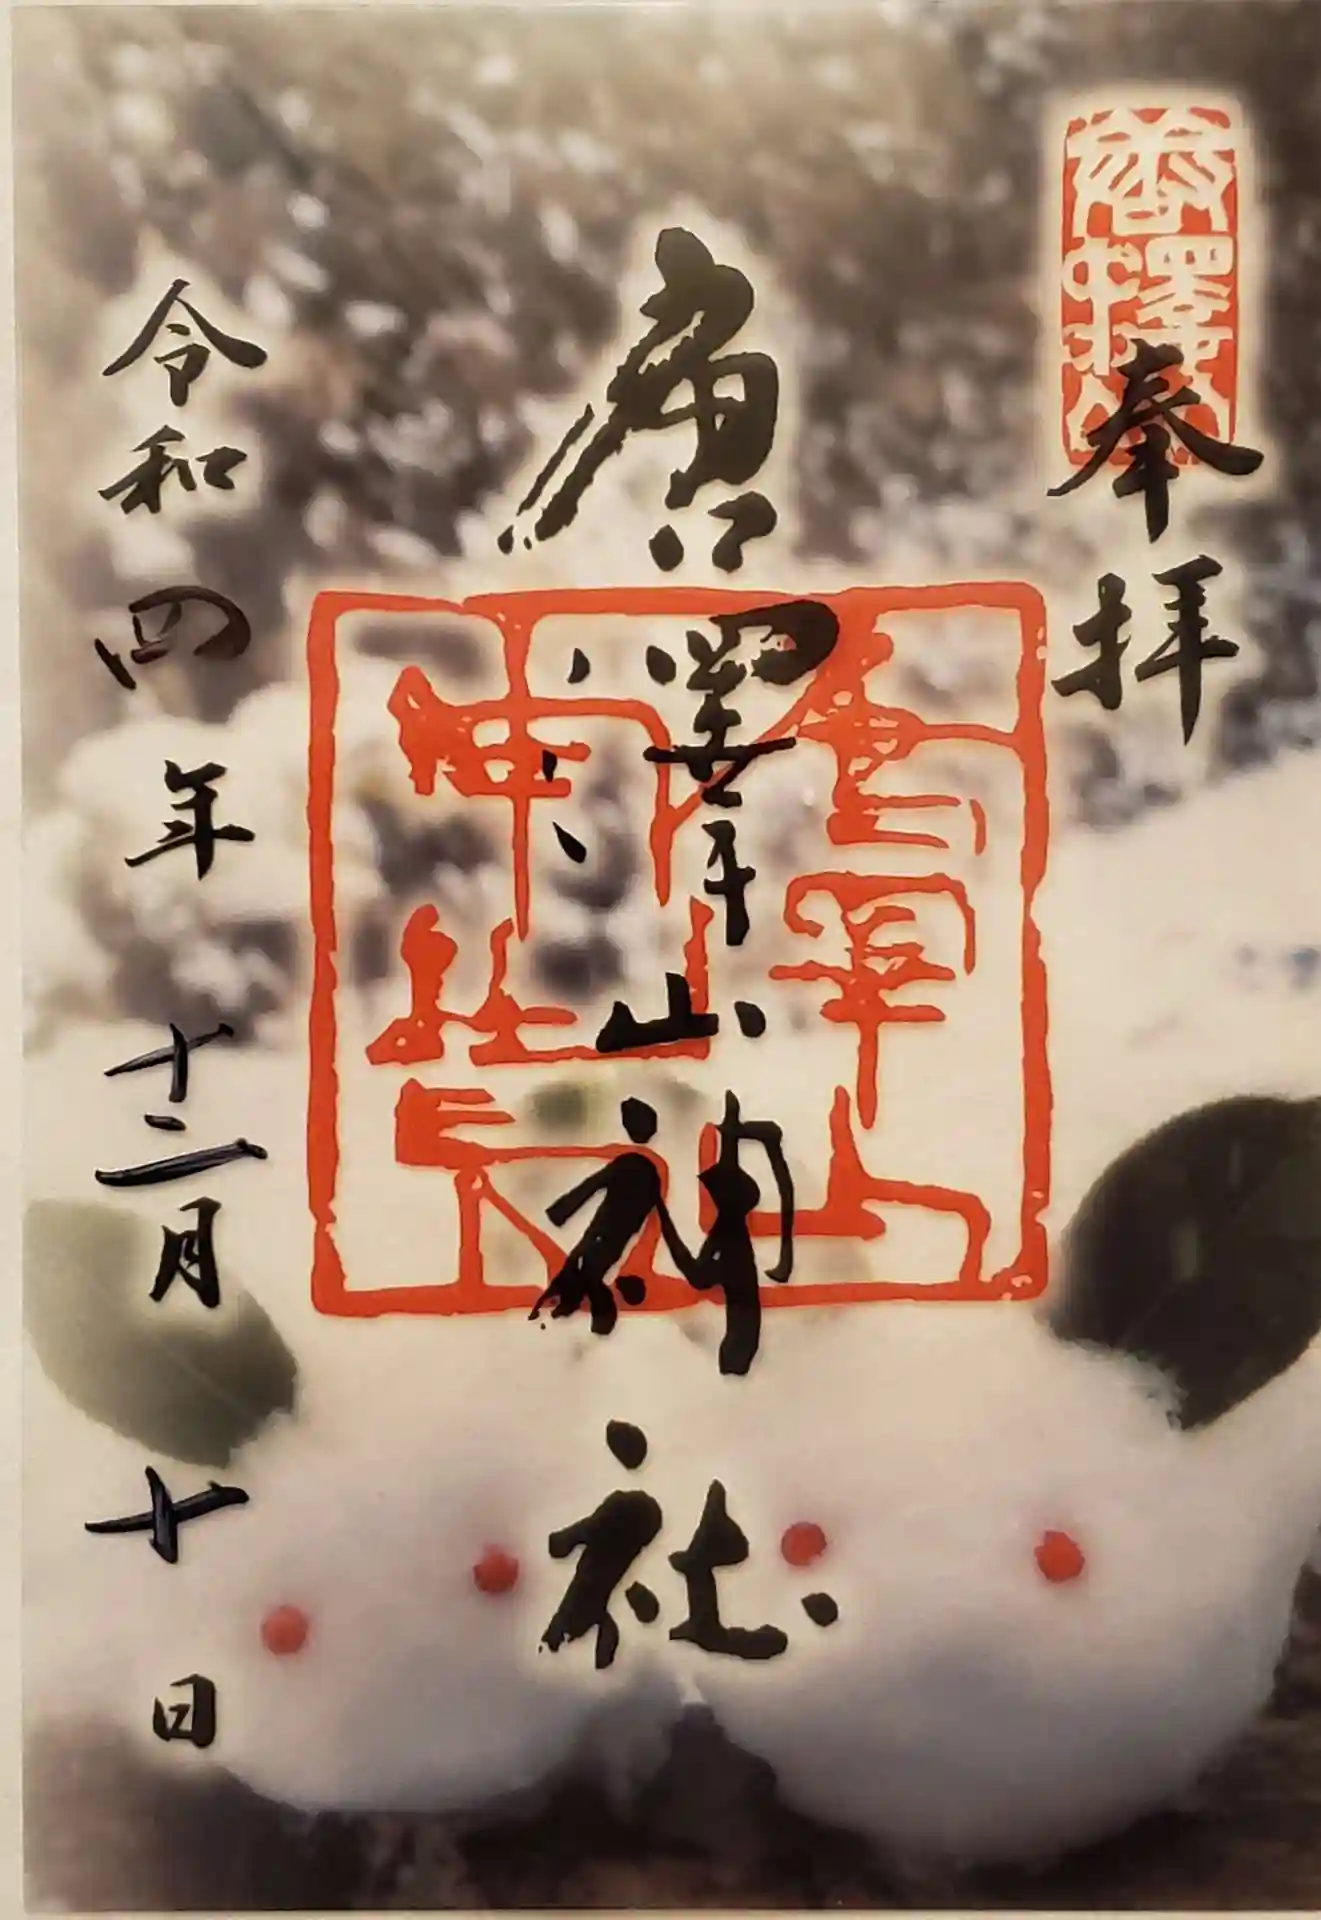 唐澤山
奉拝
唐澤山神社
令和四年十二月十日